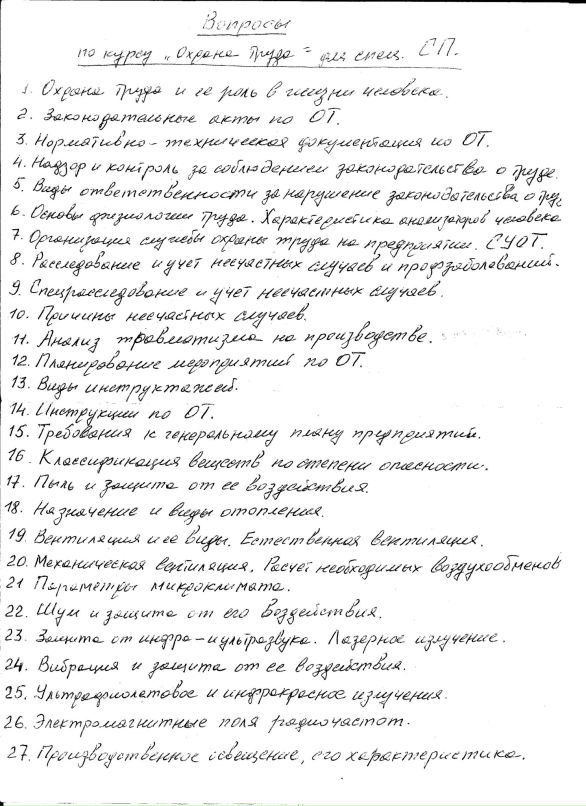 Вопросы
по курсу „Охрана труда" для спец. СП.
1. Охрана труда и ее роль в жизни человека.
2. Законодательные акты по ОТ.
3. Нормативно-техническая документация по ОТ.
4. Надзор и контроль за соблюдением законодательства о труде.
5. Виды ответственности за нарушение законодательства о труде
6. Основы физиологии труда. Характеристика анализаторов человека
7. Организация службы охраны труда на предприятии. СУОТ.
8. Расследование и учет несчастных случаев и профзаболеваний.
9. Спецрасследование и учет несчастных случаев.
10. Причины несчастных случаев.
11. Анализ травматизма на производстве.
12. Планирование мероприятий по ОТ.
13. Виды инструктажей.
14. Инструкции по ОТ.
15. Требования к генеральному плану предприятий.
16. Классификация веществ по степени опасности.
17. Пыль и защита от ее воздействия.
18. Назначение и виды отопления.
19. Вентиляция и ее виды. Естественная вентиляция.
20. Механическая вентиляция. Расчет необходимых воздухообменов
21 Параметры микроклимата.
22. Шум и защита от его воздействия.
23. Защита от инфра-и ультразвука. Лазерное излучение.
24. Вибрация и защита от ее воздействия.
25. Ультрафиолетовое и инфракрасное излучения.
26. Электромагнитные поля радиочастот.
27. Производственное освещение, его характеристика.